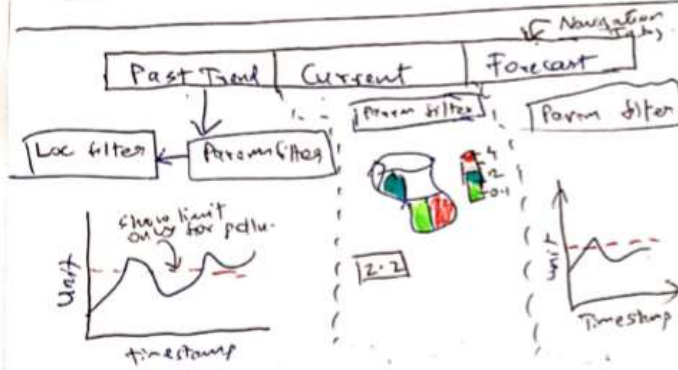 Navigation
Past Trend
Current
Forecast
Loc filter
Param filter
Param filter
Param filter
show limit
only for pollu.
Unit
timestamp
4
2
0.1
2.2
Unit
Timestamp